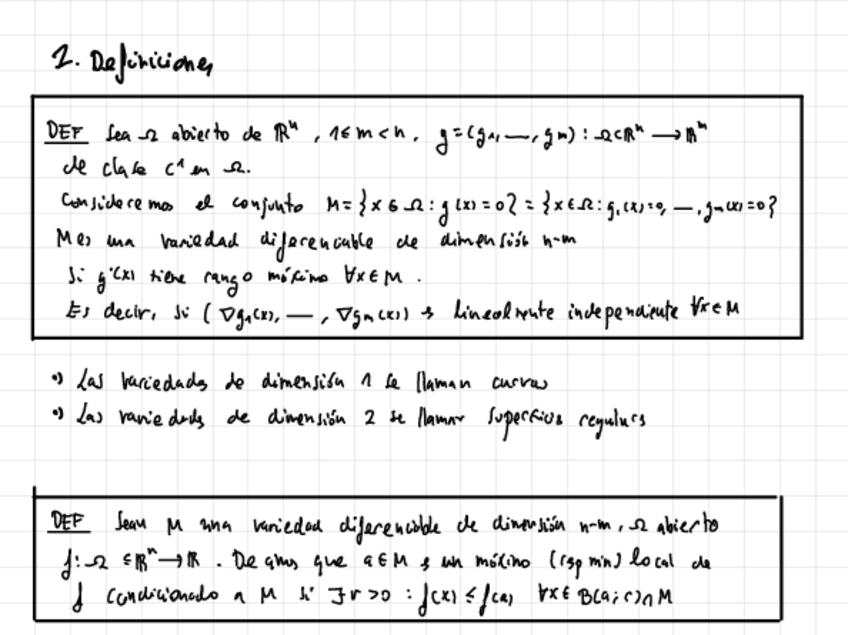 2. Definiciones
DEF Sea Ω abierto de ℝⁿ, 1≤m<n. g=(g₁,—,gₘ): Ω⊂ℝⁿ → ℝᵐ
de clase C¹ en Ω.
Consideremos el conjunto M={x∈Ω: g(x)=0}={x∈Ω: g₁(x)=0, —, gₘ(x)=0}
M es una variedad diferenciable de dimensión n-m
Si g'(x) tiene rango máximo ∀x∈M.
Es decir, si (∇g₁(x), —, ∇gₘ(x)) es linealmente independiente ∀x∈M
•) Las variedades de dimensión 1 se llaman curvas
•) Las variedades de dimensión 2 se llaman superficies regulares
DEF Sean M una variedad diferenciable de dimensión n-m, Ω abierto
f: Ω ⊆ℝⁿ→ℝ. Decimos que a∈M es un máximo (resp min) local de
f condicionado a M si ∃r>0: f(x) ≤ f(a) ∀x∈B(a;r)∩M